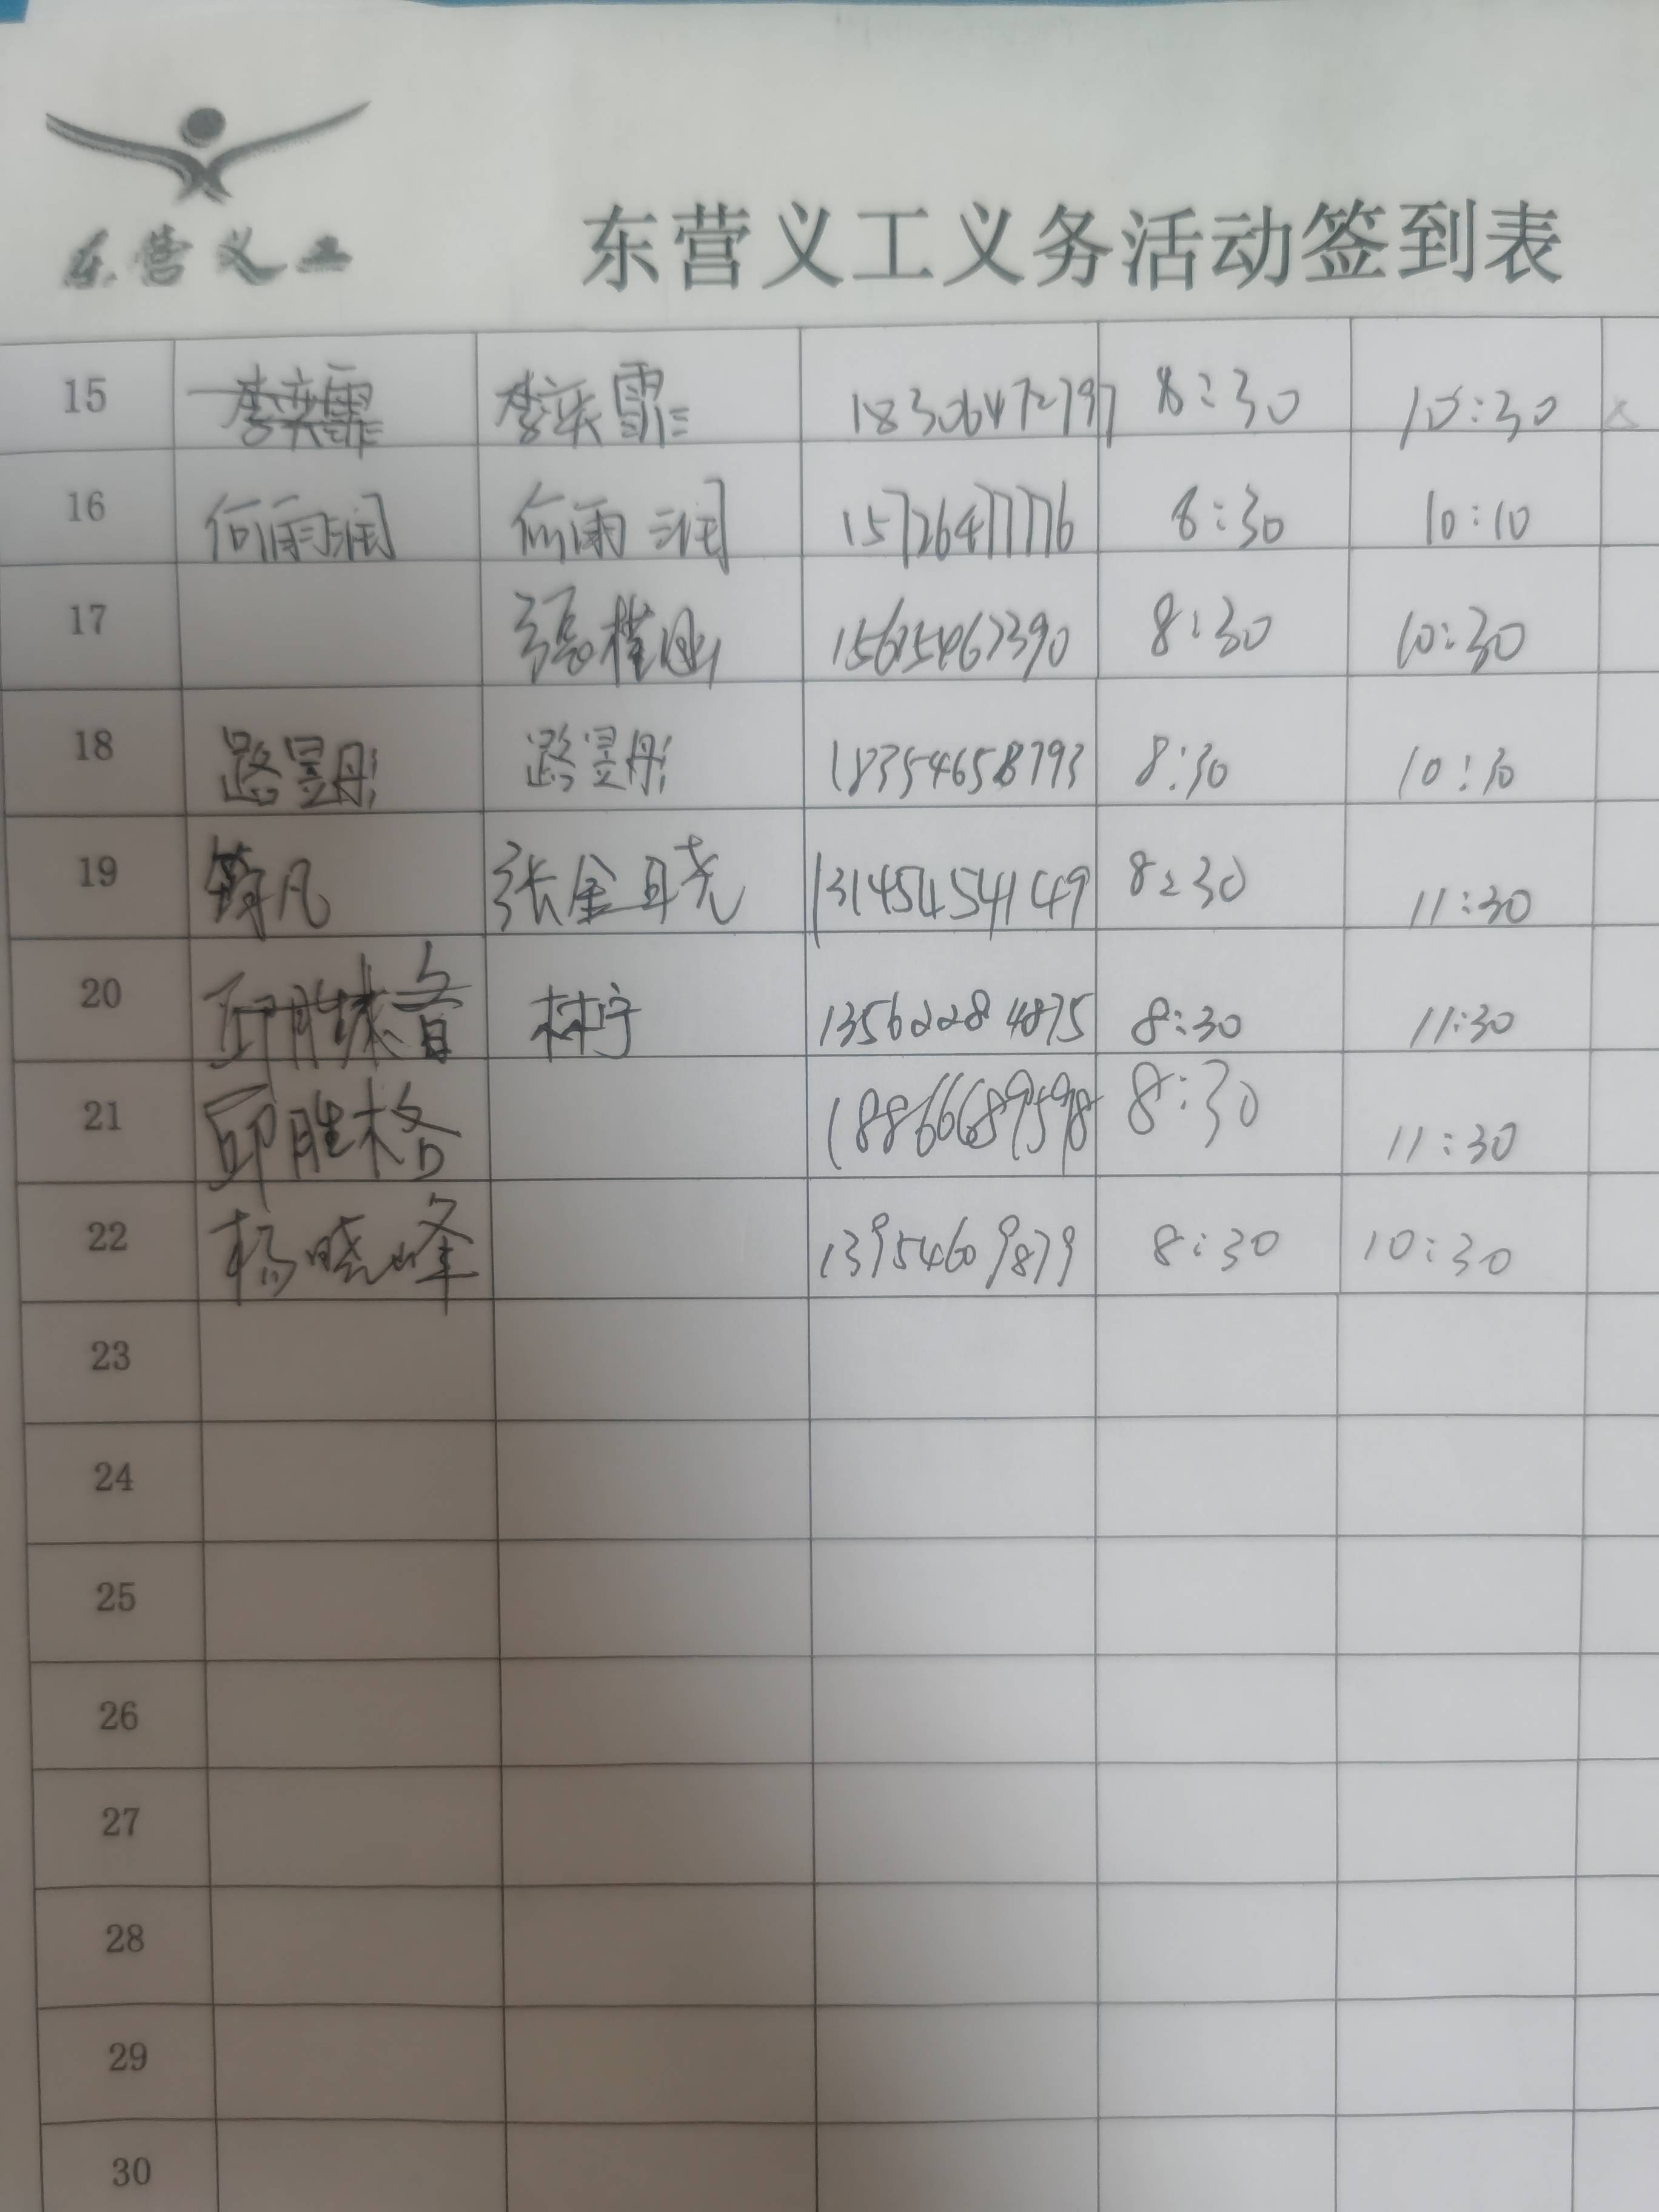 东营义工
东营义工义务活动签到表
15 李奕霏 李奕霏 18306472797 8:30 10:30
16 何雨润 何雨润 15726477776 8:30 10:10
17 8:30 10:30
18 路昱彤 路昱彤 18354658793 8:30 10:30
19 凡 张金 13145454149 8:30 11:30
20 林宁 13562284875 8:30 11:30
21 邱胜格 18866689598 8:30 11:30
22 杨晓峰 13954609879 8:30 10:30
23
24
25
26
27
28
29
30